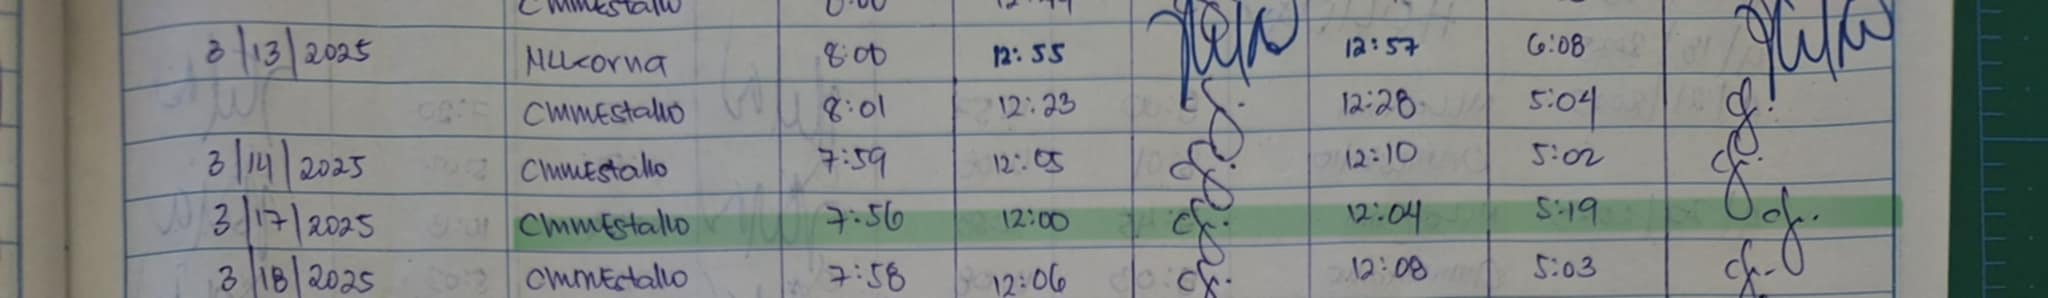 CMMEstallo
3/13/2025 MLLcorna 8:00 12:55 12:57 6:08
CMMEstallo 8:01 12:23 12:28 5:04
3/14/2025 CMMEstallo 7:59 12:05 12:10 5:02
3/17/2025 CMMEstallo 7:56 12:00 12:04 5:19
3/18/2025 CMMEstallo 7:58 12:06 12:08 5:03